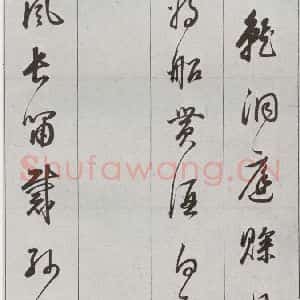 就洞庭賒月
將船貰酒白
風長留
Shufawang.CN